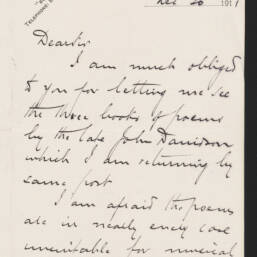 TELEPHONE
Dec 20 1911
Dear Sir
I am much obliged
to you for letting me see
the three books of poems
by the late John Davidson,
which I am returning by
same post.
I am afraid the poems
are in nearly every case
unsuitable for musical